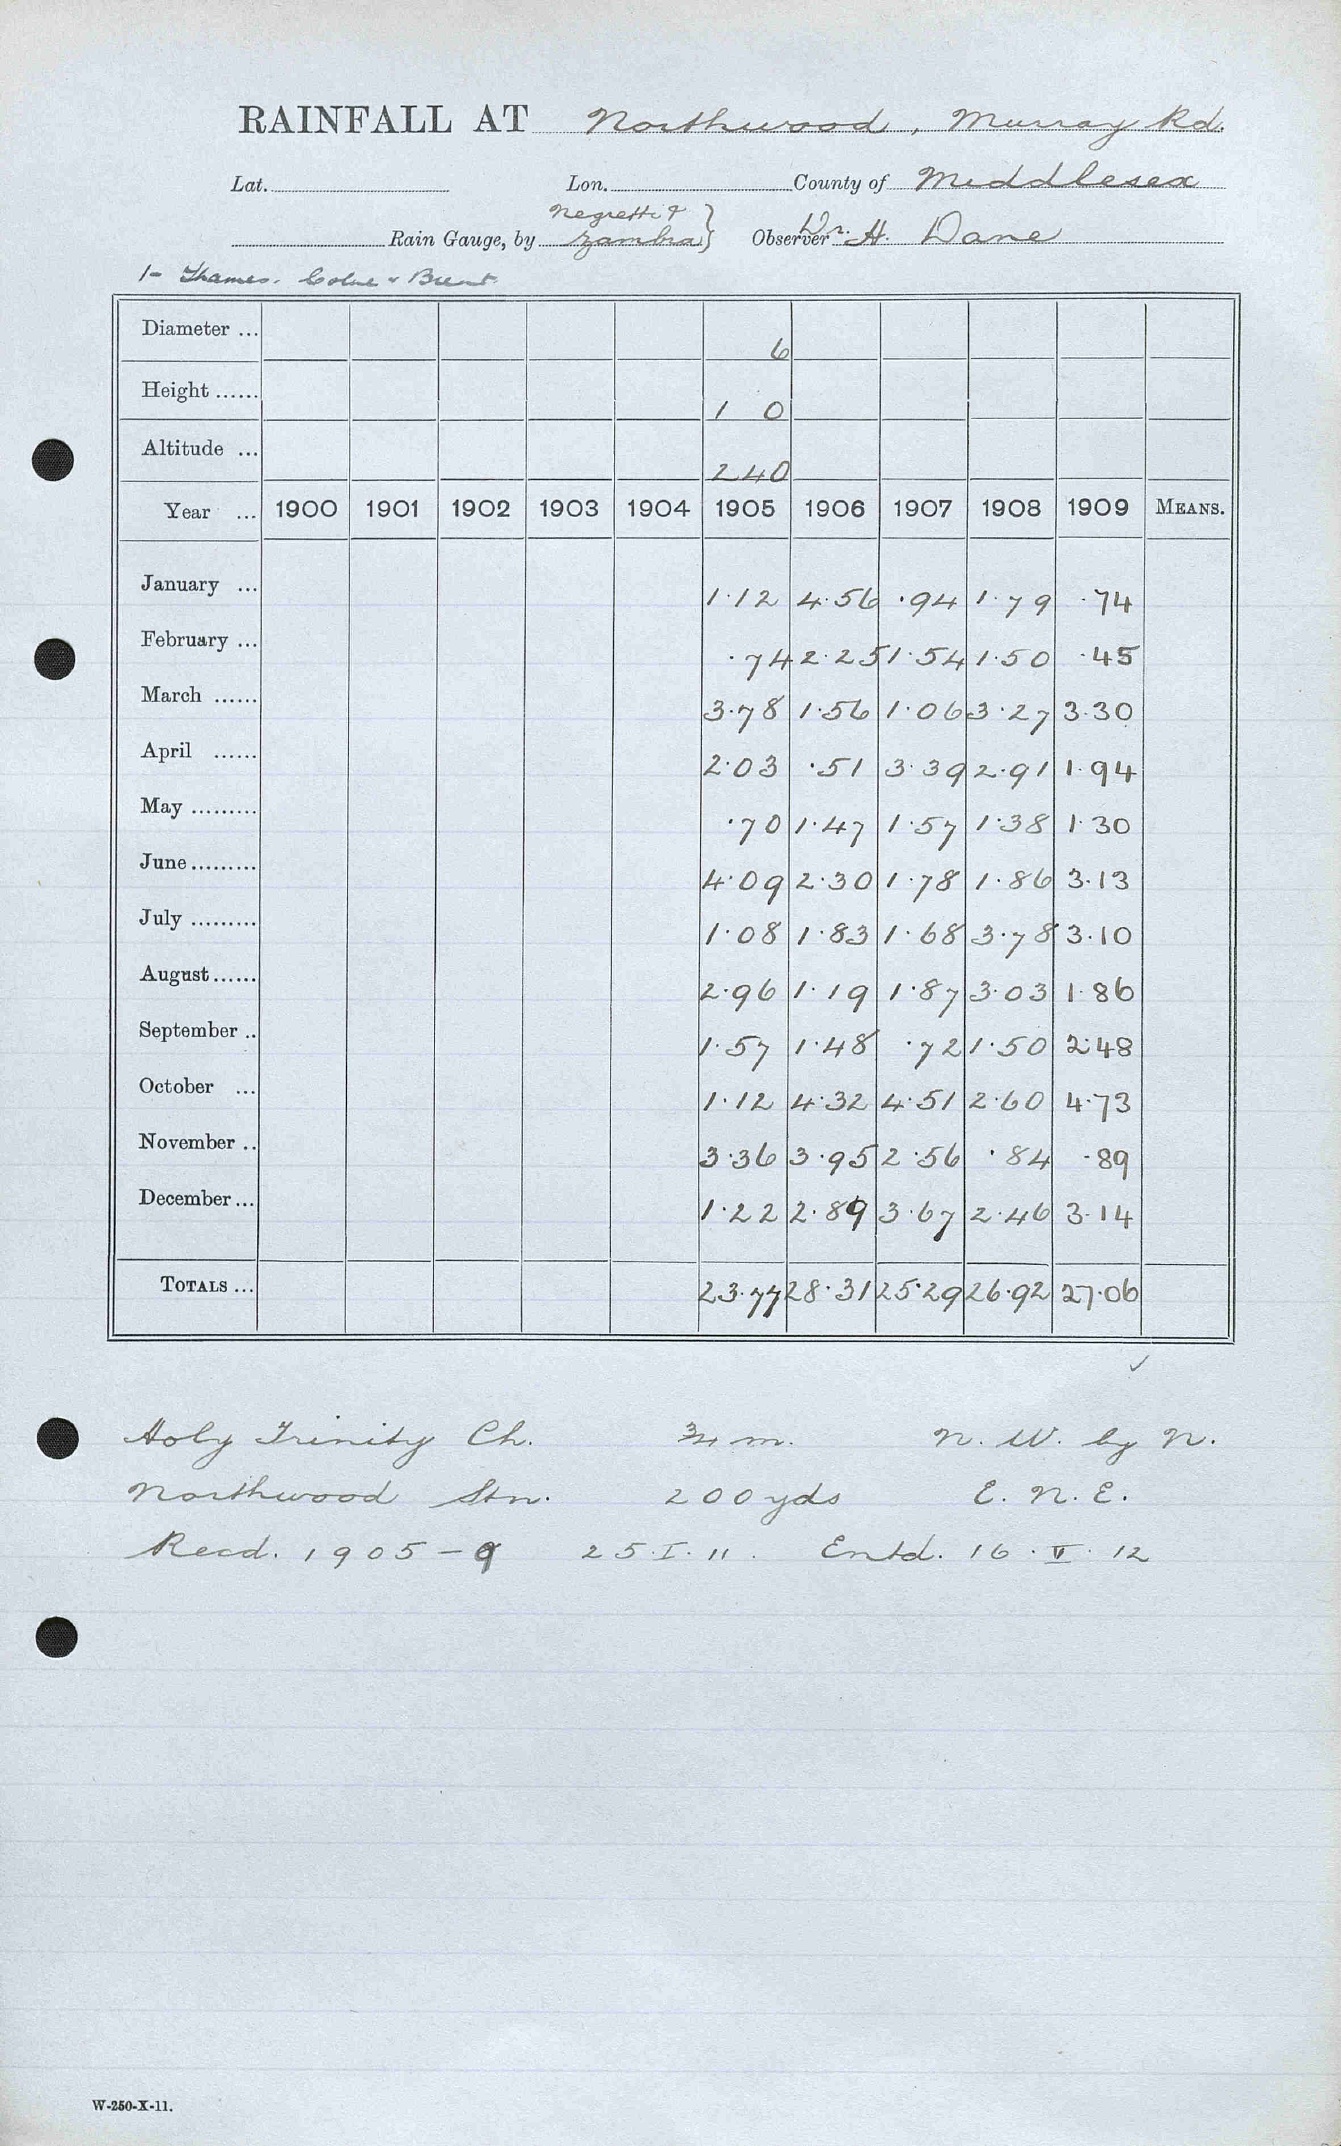 RAINFALL AT Northwood, Murray Rd.
Lat. Lon. County of Middlesex
Rain Gauge, by Negretti & Zambra} Observer Dr. H. Dane
1- Thames. Colne & Brent.
Diameter ... 6
Height ...... 1 0
Altitude ... 240
Year ... 1900 1901 1902 1903 1904 1905 1906 1907 1908 1909 MEANS.
January ... 1.12 4.56 .94 1.79 .74
February ... .74 2.25 1.54 1.50 .45
March ...... 3.78 1.56 1.06 3.27 3.30
April ...... 2.03 .51 3.39 2.91 1.94
May ......... .70 1.47 1.57 1.38 1.30
June ......... 4.09 2.30 1.78 1.86 3.13
July ......... 1.08 1.83 1.68 3.78 3.10
August ...... 2.96 1.19 1.87 3.03 1.86
September .. 1.57 1.48 .72 1.50 2.48
October ... 1.12 4.32 4.51 2.60 4.73
November .. 3.36 3.95 2.56 .84 .89
December ... 1.22 2.89 3.67 2.46 3.14
TOTALS ... 23.77 28.31 25.29 26.92 27.06
✓
Holy Trinity Ch. 3/4 m. N. W. by N.
Northwood Stn. 200 yds E. N. E.
Recd. 1905-9 25.I.11. Entd. 16.II.12
W-250-X-11.